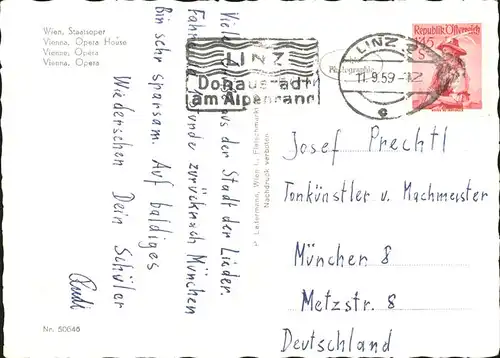 Wien, Staatsoper
Vienna, Opera House
Vienne, Opéra
Vienna, Opera
Viele aus der Stadt der Lieder.
Fahre Stunde zurück nach München
Bin sehr sparsam. Auf baldiges
Wiedersehen Dein Schüler
Rudi
Nr. 50646
P. Ledermann, Wien I., Fleischmarkt
Nachdruck verboten.
Photographie
LINZ
Donaustadt
am Alpenrand
LINZ 2
11.9.59-12
c
Republik Österreich
1.45
S
Josef Prechtl
Tonkünstler u. Machmeister
München 8
Metzstr. 8
Deutschland